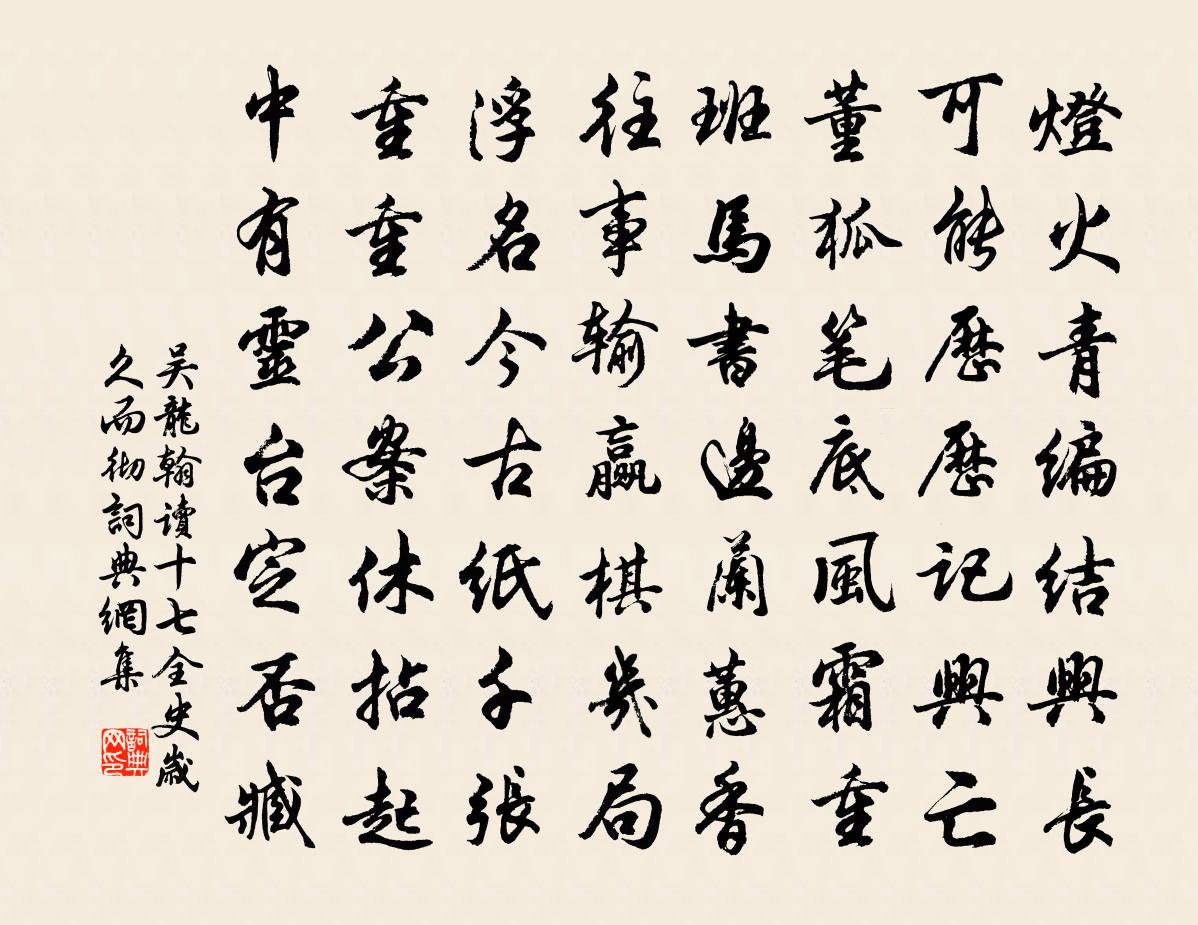 燈火青編結興長
可能歷歷記興亡
董狐笔底風霜重
班馬書邊蘭蕙香
往事输贏棋幾局
浮名今古紙千張
重重公案休拈起
中有靈台定否臧
吴龍翰讀十七全史歲
久而彻詞典網集
詞典
网印